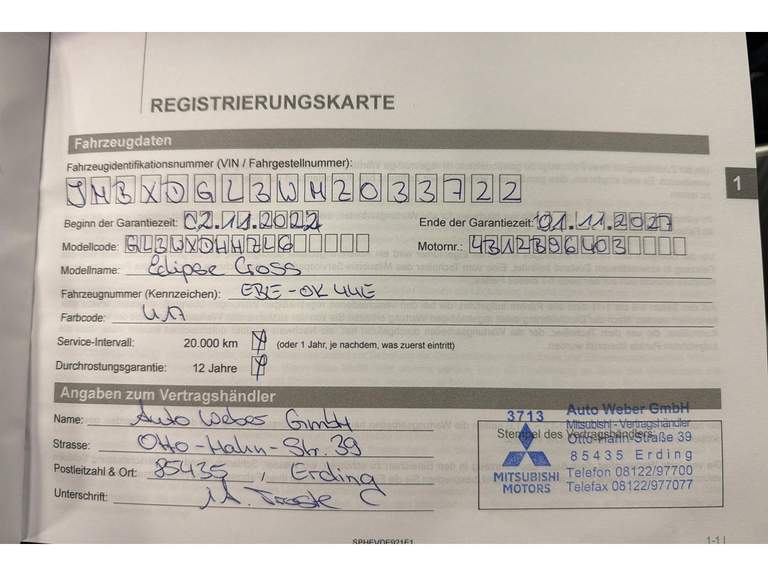 REGISTRIERUNGSKARTE
Fahrzeugdaten
Fahrzeugidentifikationsnummer (VIN / Fahrgestellnummer):
JMBXDGL3WMZ033722
Beginn der Garantiezeit: 02.11.2022 Ende der Garantiezeit: 01.11.2027
Modellcode: GL3WXDHHZL6 Motornr.: 4B12B96403
Modellname: Eclipse Cross
Fahrzeugnummer (Kennzeichen): EBE-OK 44E
Farbcode: U17
Service-Intervall: 20.000 km (oder 1 Jahr, je nachdem, was zuerst eintritt)
Durchrostungsgarantie: 12 Jahre
1
Angaben zum Vertragshändler
Name: Auto Weber GmbH
Strasse: Otto-Hahn-Str. 39
Postleitzahl & Ort: 85435, Erding
Unterschrift:
Stempel des Vertragshändlers
3713
MITSUBISHI
MOTORS
Auto Weber GmbH
Mitsubishi - Vertragshändler
Otto-Hahn-Straße 39
85435 Erding
Telefon 08122/97700
Telefax 08122/977077
SPHEVDE921E1
1-1